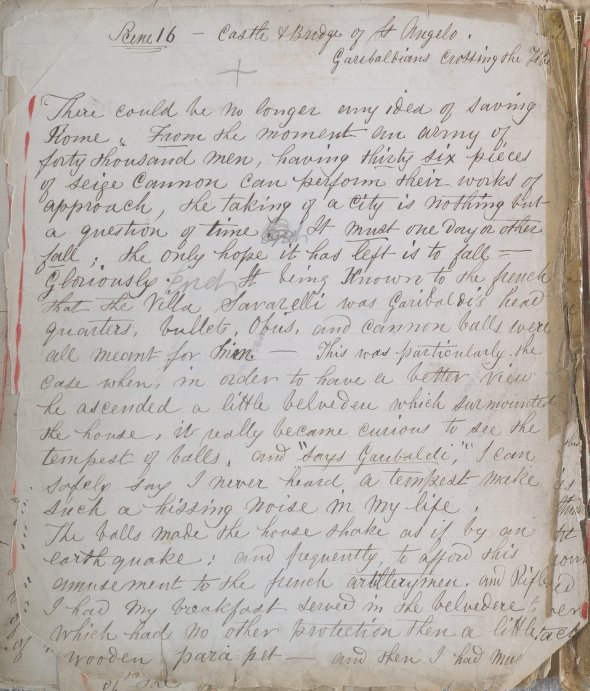 Scene 16 — Castle & Bridge of St Angelo.
Garibaldians Crossing the
"There could be no longer any idea of saving
Rome". From the moment an army of
forty thousand men, having thirty six pieces
of seige Cannon can perform their works of
approach, the taking of a City is nothing but
a question of time It must one day or other
fall; the only hope it has left is to fall =
Gloriously. End It being Known to the french
that the Villa Savarelli was Garibaldi's head
quarters, bullets, Obus, and cannon balls were
all meant for him — This was particularly the
case when, in order to have a better view
he ascended a little belveden which surmounted
the house, it really became curious to see the
tempest of balls, and "says Garibaldi", "I can
safely say I never heard a tempest make
such a hissing noise in my life.
The balls made the house shake as if by an
earth quake: and frequently, to afford this
amusement to the french artillerymen, and Rifle
I had my breakfast served in the belvedere",
which had no other protection then a little
wooden para pet — and then I had